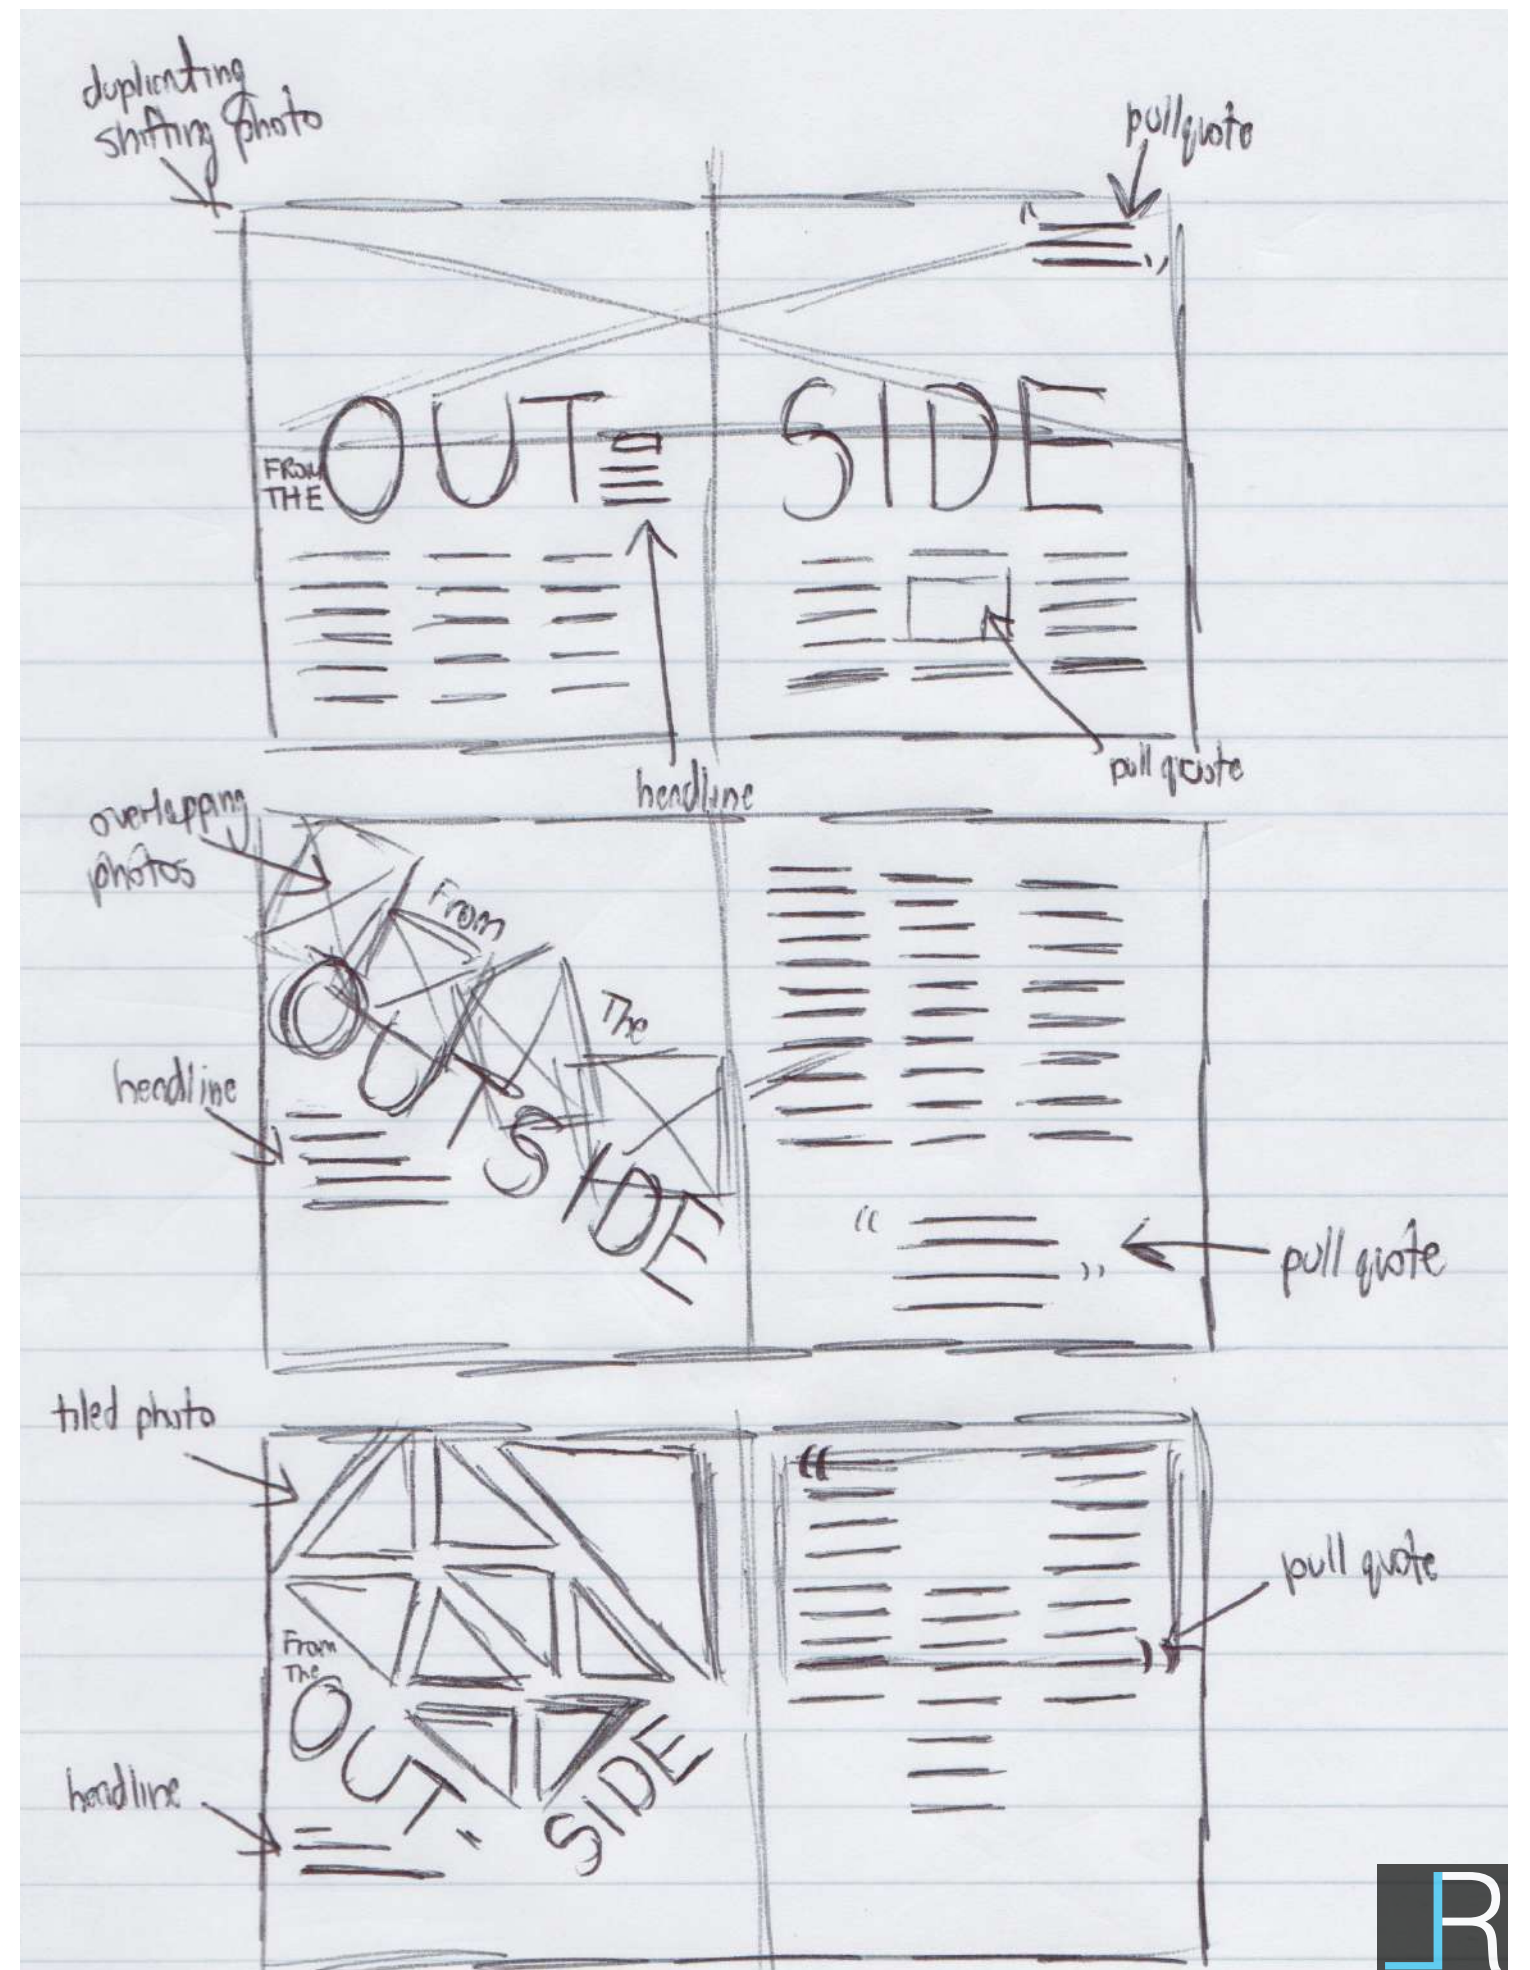 duplicating
shifting photo
pull quote
FROM
THE
OUT
SIDE
headline
pull quote
overlapping
photos
From
The
OUTSIDE
headline
pull quote
tiled photo
From
The
OUT-
SIDE
pull quote
headline
JR